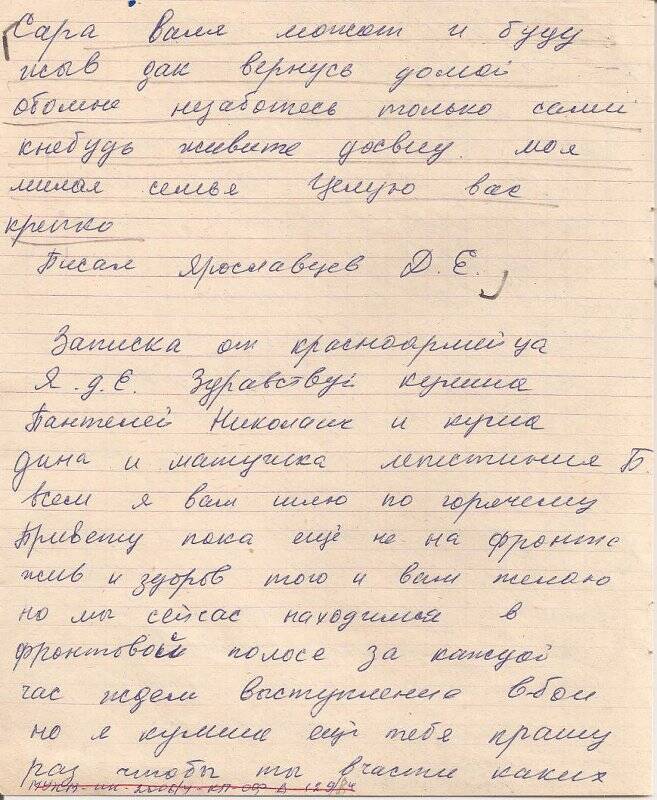 Сара Валя может и буду
жыв дак вернусь домой
обомне незаботесь только сами
кнебудь живите досвиду моя
милая семья Целую вас
крепко
Писал Ярославцев Д. Е.
Записка от красноармейца
Я. д. Е. Здравствуй кумша
Пантелей Николаич и кума
дина и матушка Б.
всем я вам шлю по горячему
Привету пока ещё не на фронте
жив и здоров того и вам желаю
но мы сейчас находимся в
фронтовой полосе за каждой
час ждем выступление вбои
но я кумша ещё тебя прашу
раз чтобы ты вчасти каких